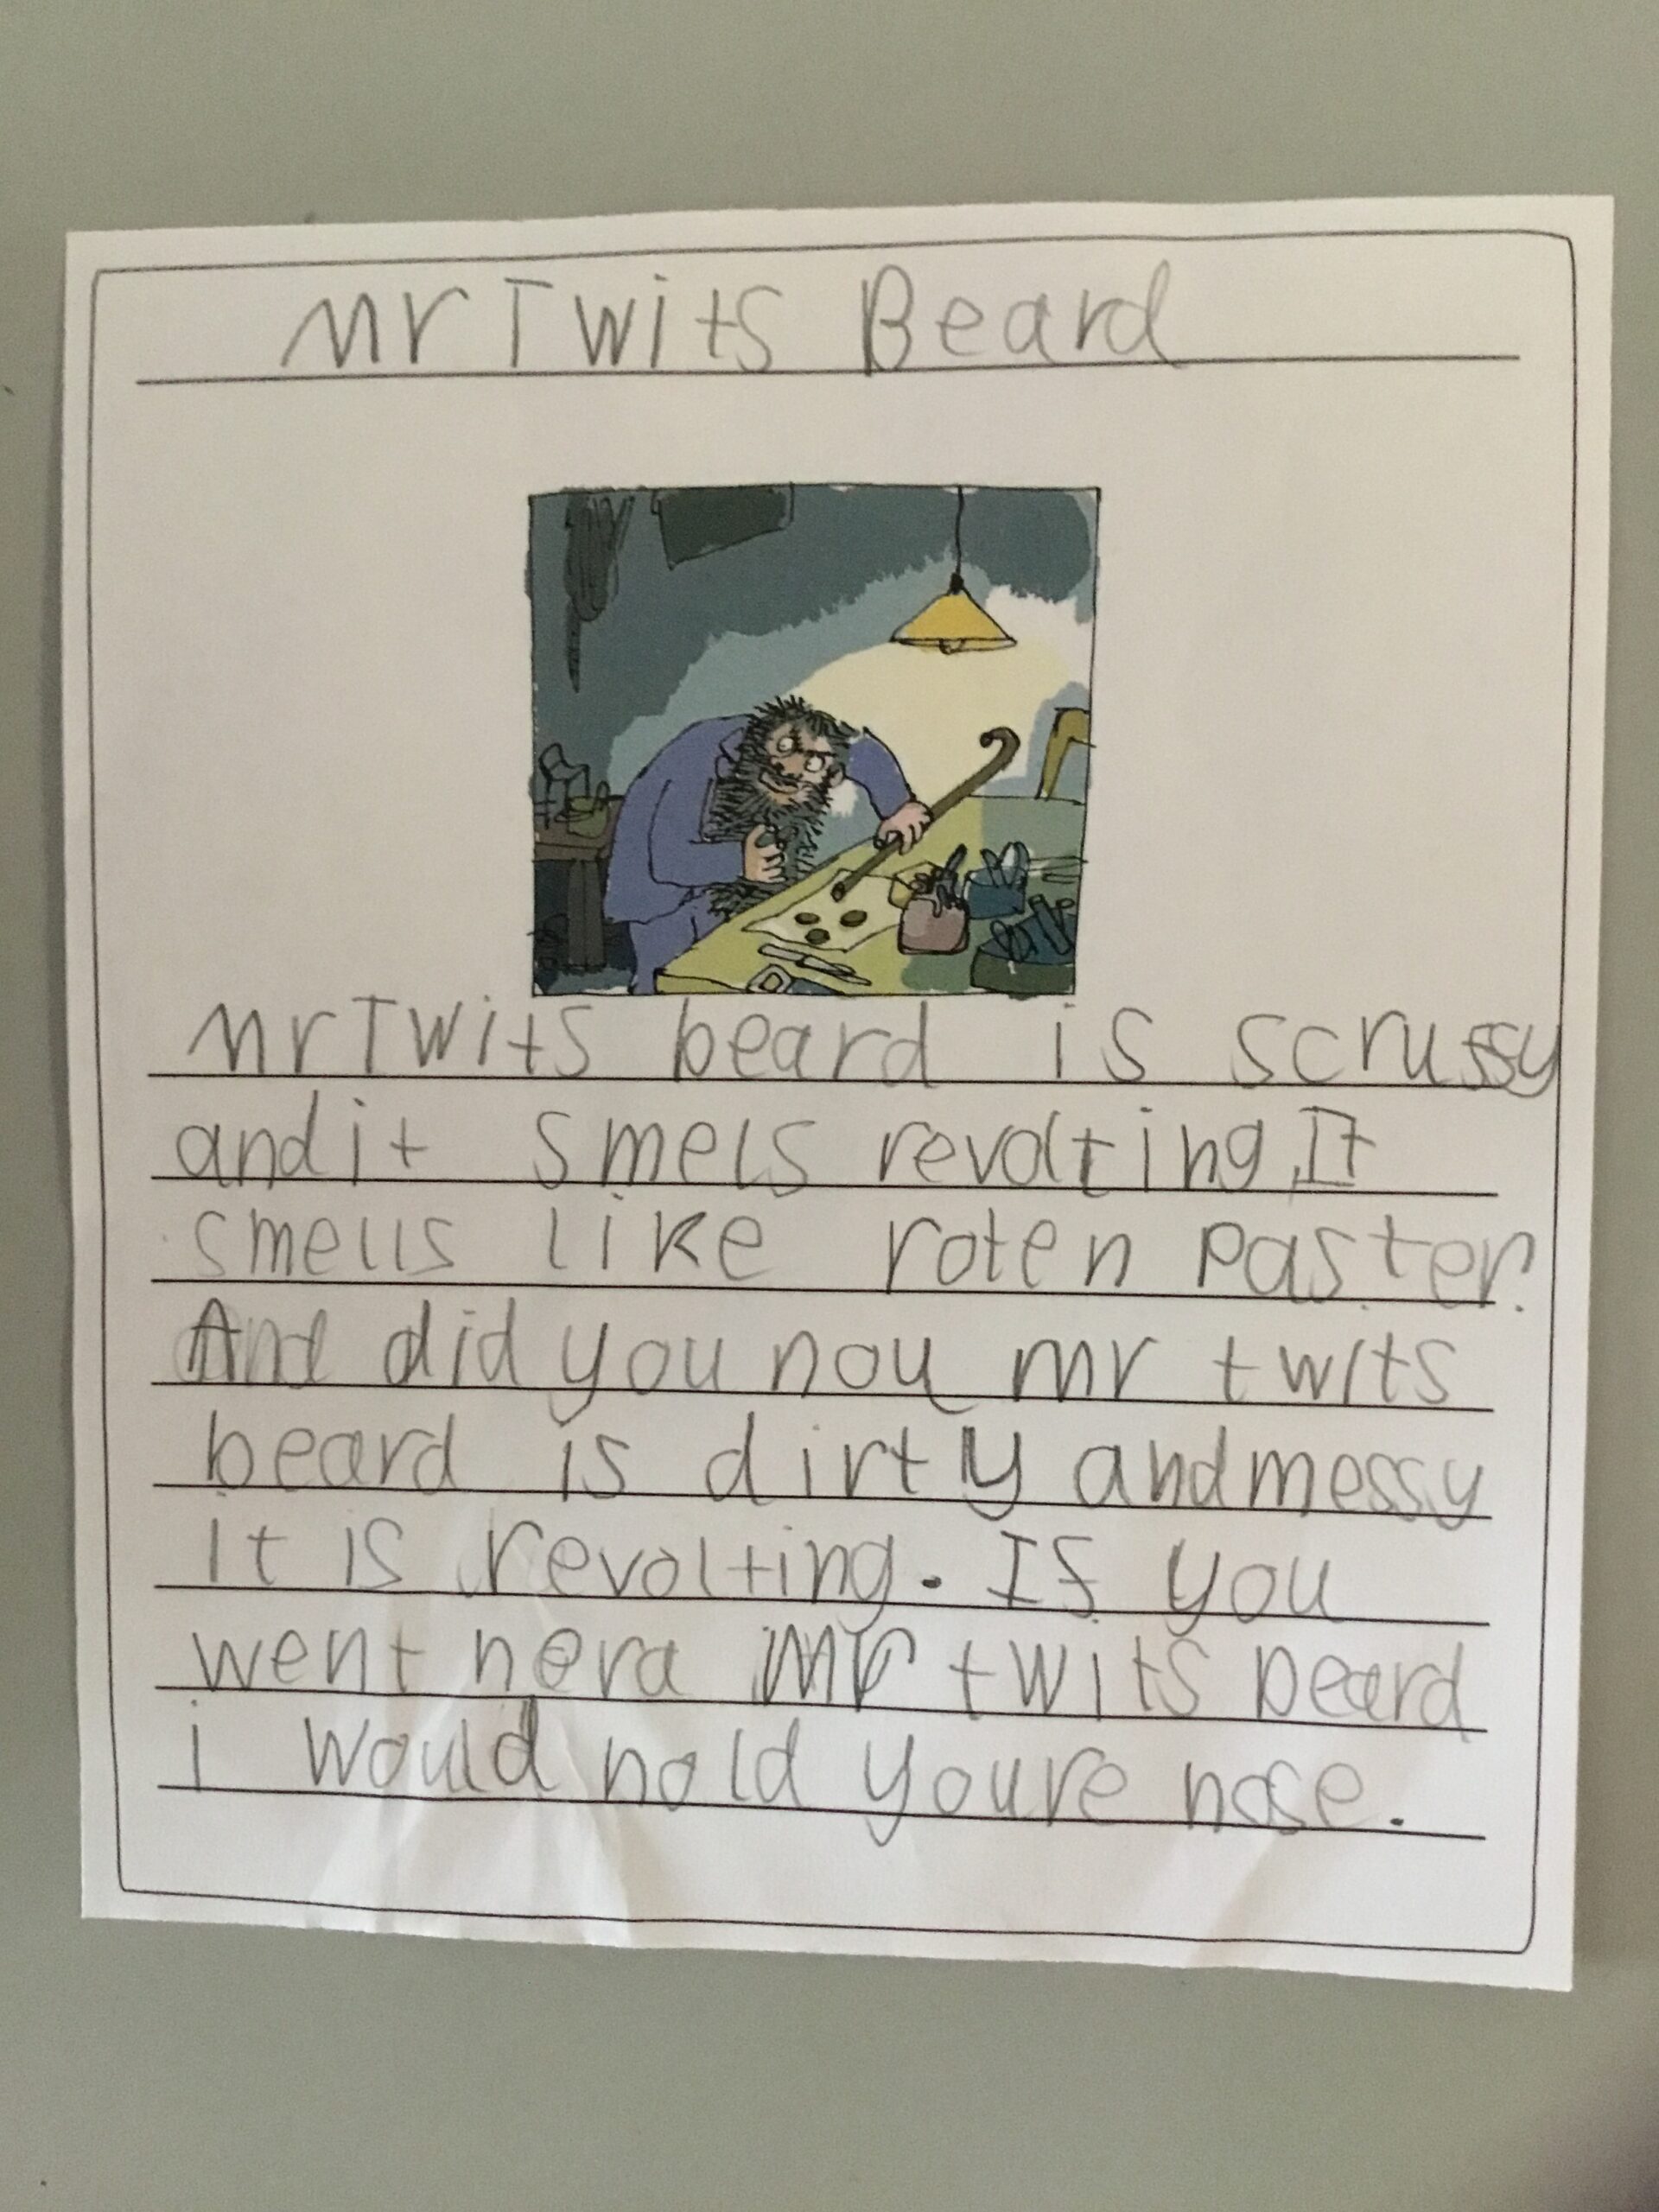 Mr Twits Beard
Mr Twits beard is scruffy
and it smels revolting. It
smells like roten paster.
And did you nou mr twits
beard is dirty and messy
it is revolting. If you
went nera Mr twits beard
i would hold youre nose.